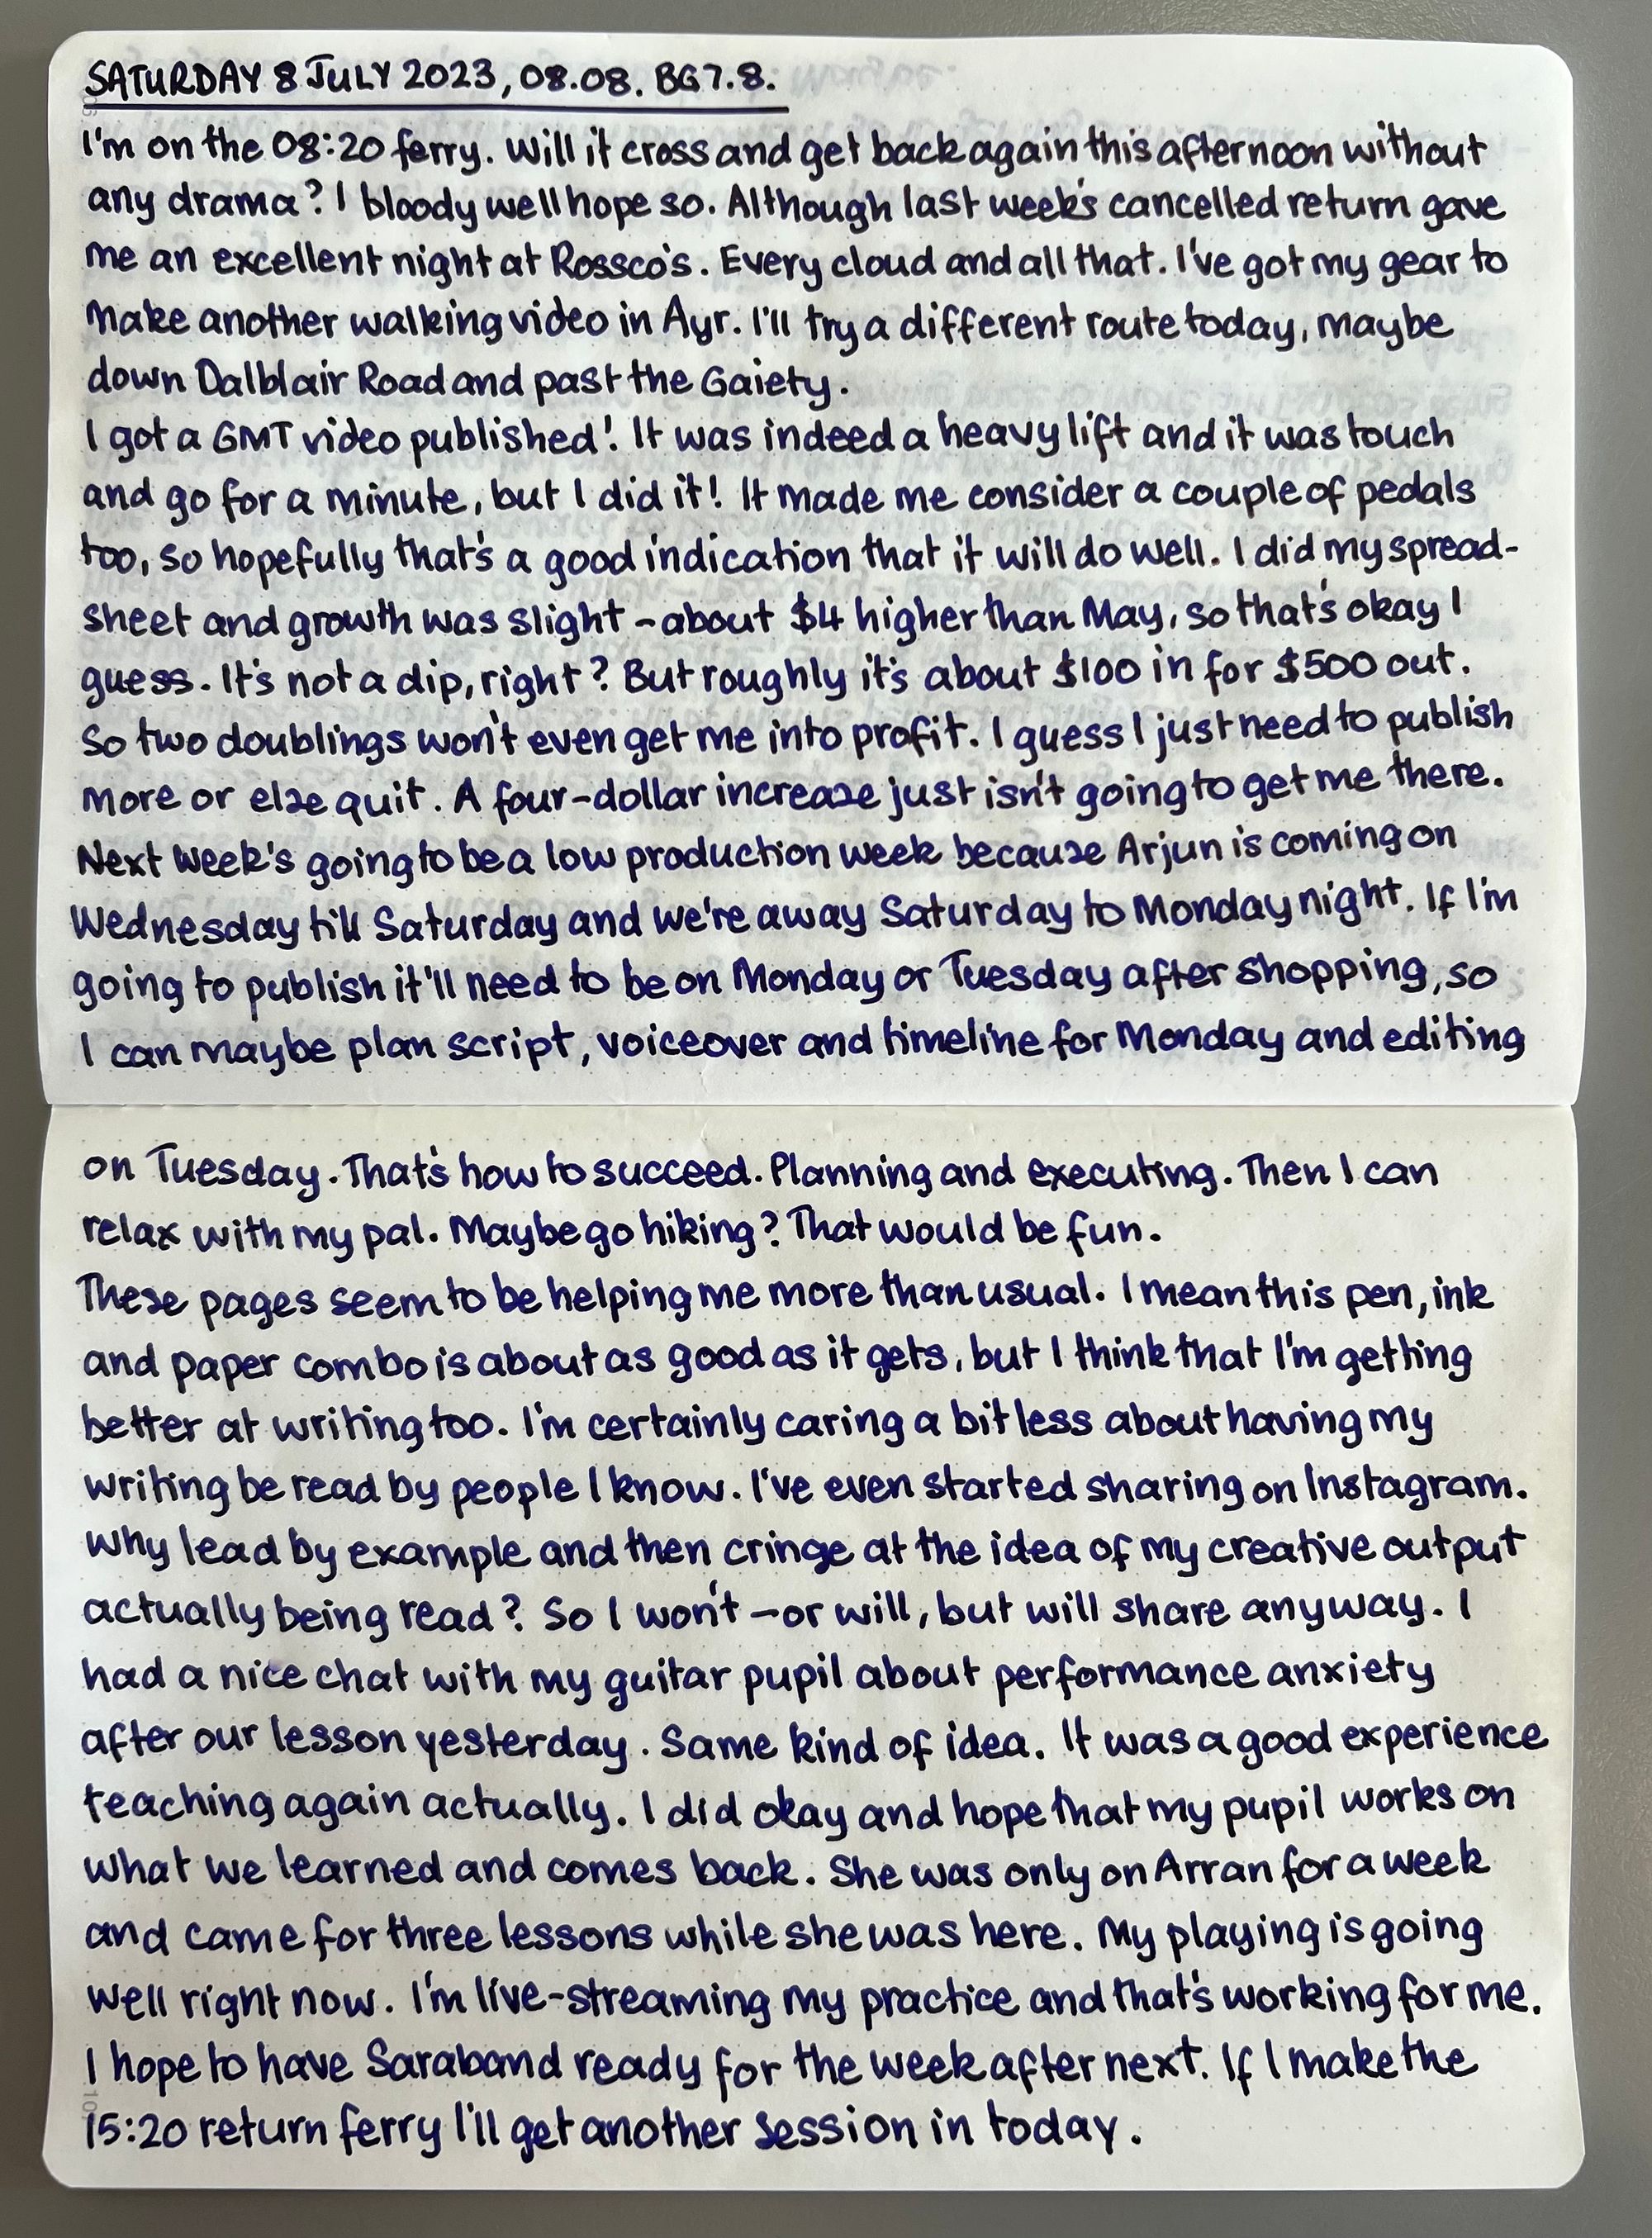 SATURDAY 8 JULY 2023, 08.08. BG7.8.
I'm on the 08:20 ferry. Will it cross and get back again this afternoon without
any drama? I bloody well hope so. Although last week's cancelled return gave
me an excellent night at Rossco's. Every cloud and all that. I've got my gear to
make another walking video in Ayr. I'll try a different route today, maybe
down Dalblair Road and past the Gaiety.
I got a GMT video published! It was indeed a heavy lift and it was touch
and go for a minute, but I did it! It made me consider a couple of pedals
too, so hopefully that's a good indication that it will do well. I did my spread-
sheet and growth was slight - about $4 higher than May, so that's okay I
guess. It's not a dip, right? But roughly it's about $100 in for $500 out.
So two doublings won't even get me into profit. I guess I just need to publish
more or else quit. A four-dollar increase just isn't going to get me there.
Next week's going to be a low production week because Arjun is coming on
Wednesday till Saturday and we're away Saturday to Monday night. If I'm
going to publish it'll need to be on Monday or Tuesday after shopping, so
I can maybe plan script, voiceover and timeline for Monday and editing
on Tuesday. That's how to succeed. Planning and executing. Then I can
relax with my pal. Maybe go hiking? That would be fun.
These pages seem to be helping me more than usual. I mean this pen, ink
and paper combo is about as good as it gets, but I think that I'm getting
better at writing too. I'm certainly caring a bit less about having my
writing be read by people I know. I've even started sharing on Instagram.
Why lead by example and then cringe at the idea of my creative output
actually being read? So I won't - or will, but will share anyway. I
had a nice chat with my guitar pupil about performance anxiety
after our lesson yesterday. Same kind of idea. It was a good experience
teaching again actually. I did okay and hope that my pupil works on
what we learned and comes back. She was only on Arran for a week
and came for three lessons while she was here. My playing is going
well right now. I'm live-streaming my practice and that's working for me.
I hope to have Saraband ready for the week after next. If I make the
15:20 return ferry I'll get another session in today.